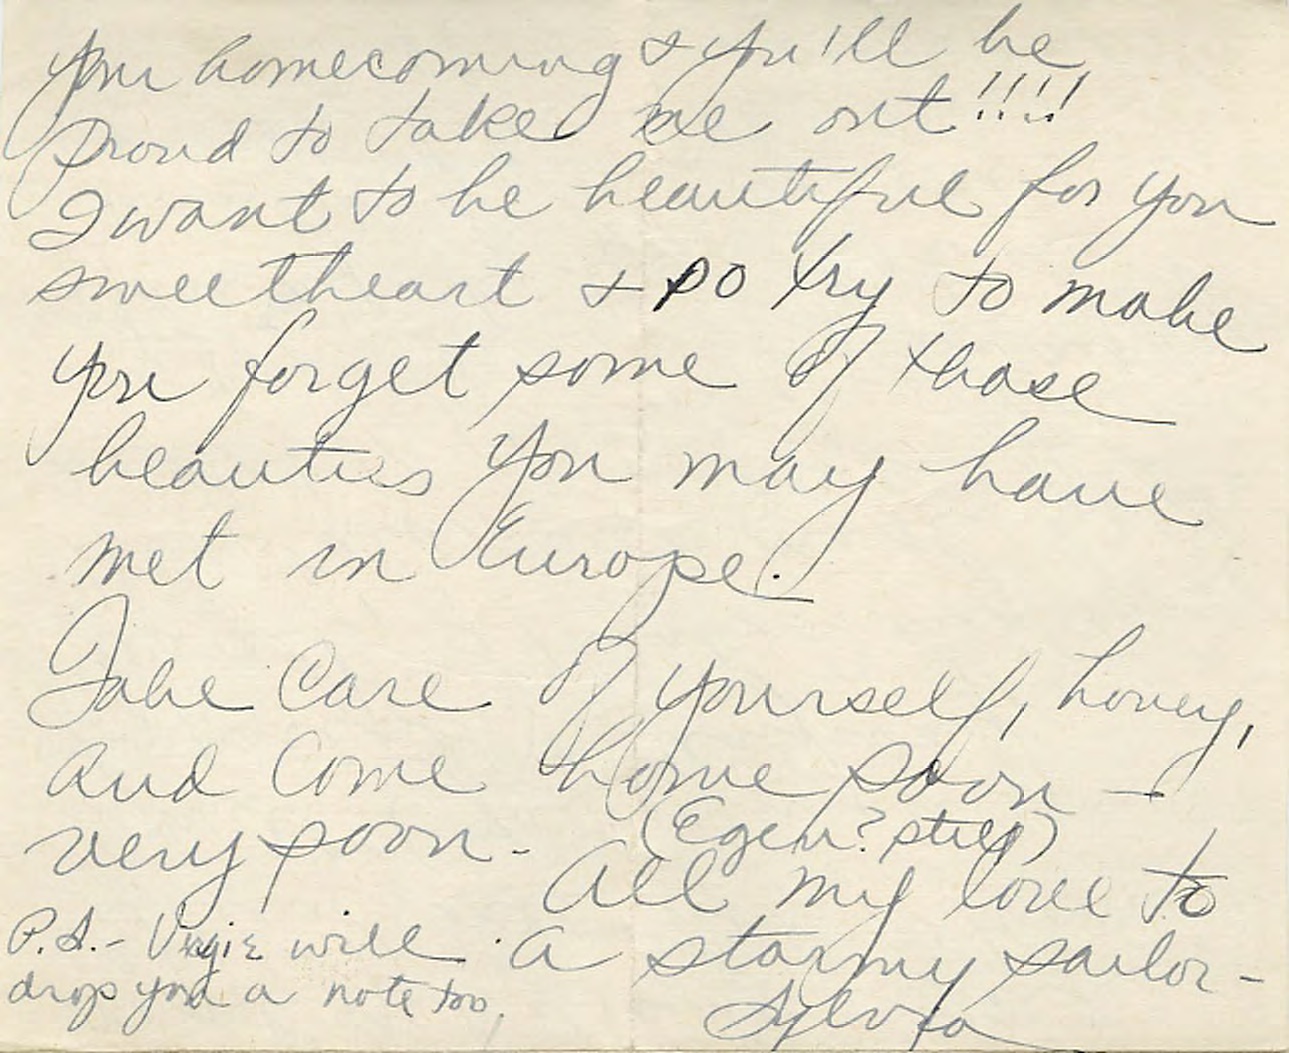 your homecoming & you'll be
proud to take me out!!!!
I want to be beautiful for you
sweetheart & so try to make
you forget some of those
beauties you may have
met in Europe.
Take Care of yourself, honey,
and Come home soon -
very soon.
All my love to
a stormy sailor -
Sylvia
P.S. - Virgie will
drop you a note too.